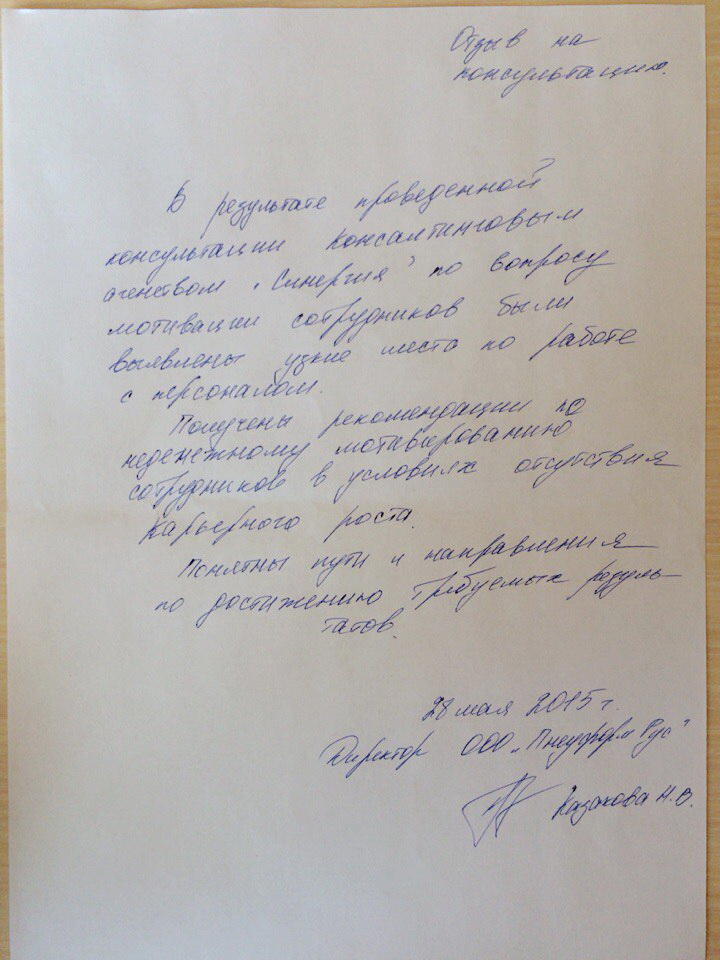 Отзыв на
консультацию.
В результате проведенной
консультации Консалтинговым
агенством „Синергия" по вопросу
мотивации сотрудников были
выявлены узкие места по работе
с персоналом.
Получены рекомендации по
неденежному мотивированию
сотрудников в условиях отсутствия
карьерного роста.
Понятны пути и направления
по достижению требуемых резуль-
татов.
28 мая 2015 г.
Директор ООО „Пневформ Рус"
Казакова Н.В.